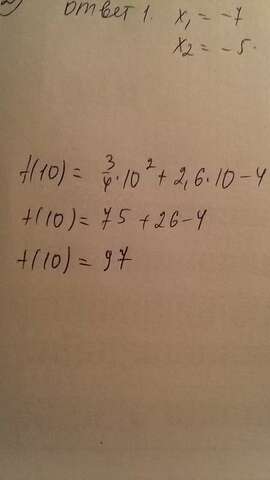 Ответ 1. x₁ = -7
x₂ = -5.
f(10) = 3/4 · 10² + 2,6 · 10 - 4
f(10) = 75 + 26 - 4
f(10) = 97